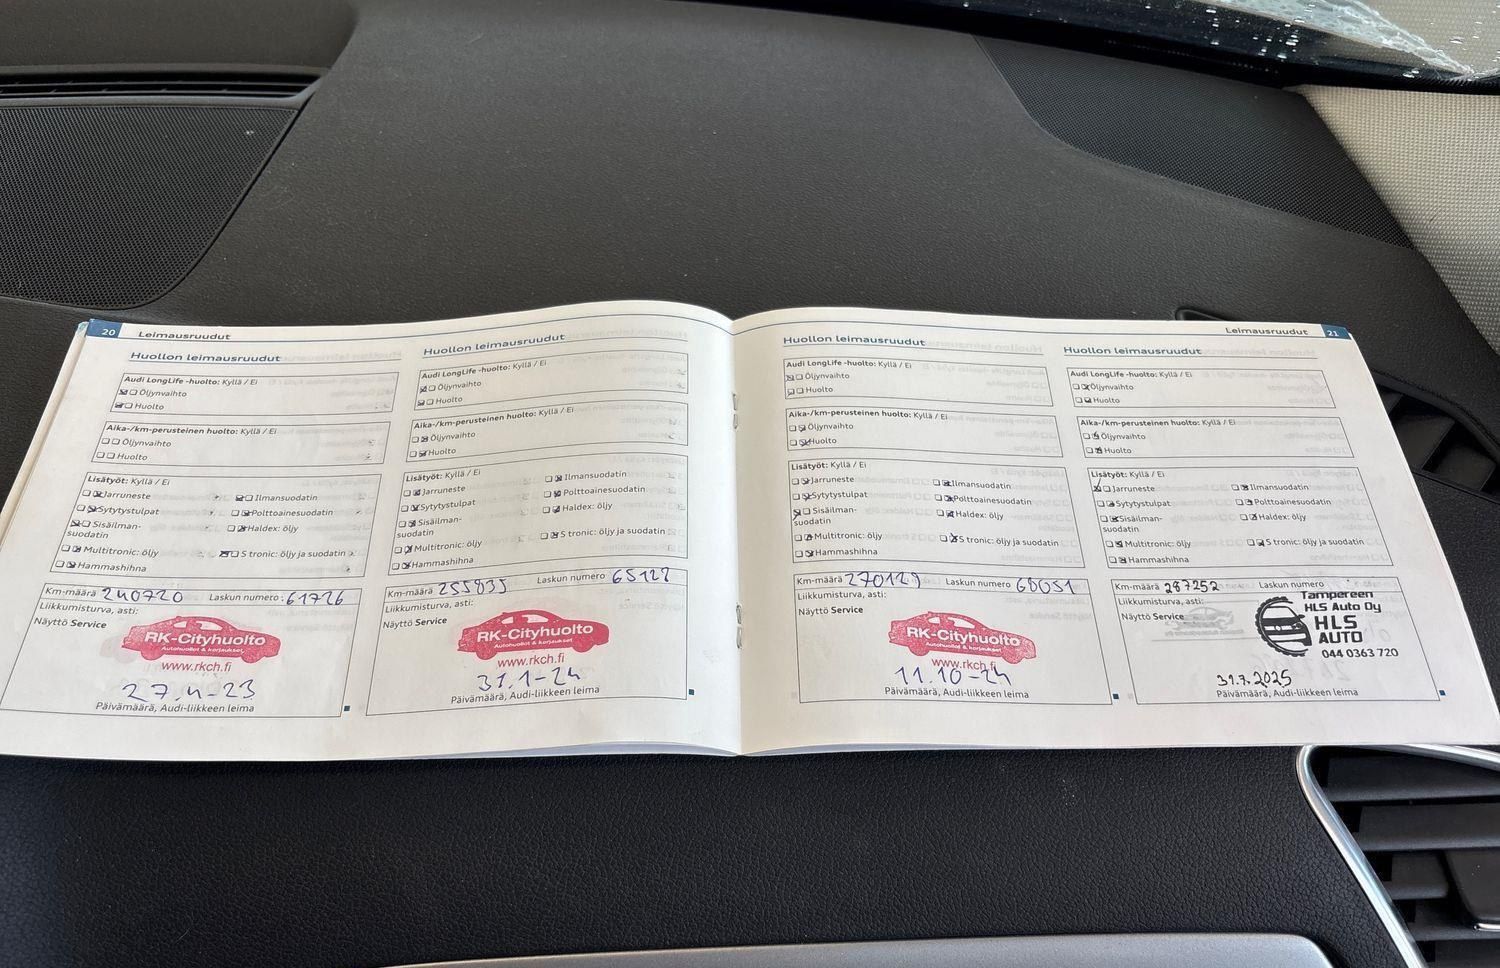 20
Leimausruudut
Huollon leimausruudut
Audi LongLife -huolto: Kyllä / Ei
Öljynvaihto
Huolto
Aika-/km-perusteinen huolto: Kyllä / Ei
Öljynvaihto
Huolto
Lisätyöt: Kyllä / Ei
Jarruneste
Ilmansuodatin
Sytytystulpat
Polttoainesuodatin
Sisäilman-
suodatin
Haldex: öljy
Multitronic: öljy
S tronic: öljy ja suodatin
Hammashihna
Km-määrä 240720 Laskun numero: 61726
Liikkumisturva, asti:
Näyttö Service
RK-Cityhuolto
Autohuollot & korjaukset
www.rkch.fi
27.4-23
Päivämäärä, Audi-liikkeen leima
Huollon leimausruudut
Audi LongLife -huolto: Kyllä / Ei
Öljynvaihto
Huolto
Aika-/km-perusteinen huolto: Kyllä / Ei
Öljynvaihto
Huolto
Lisätyöt: Kyllä / Ei
Jarruneste
Ilmansuodatin
Sytytystulpat
Polttoainesuodatin
Sisäilman-
suodatin
Haldex: öljy
Multitronic: öljy
S tronic: öljy ja suodatin
Hammashihna
Km-määrä 255835 Laskun numero 65128
Liikkumisturva, asti:
Näyttö Service
RK-Cityhuolto
Autohuollot & korjaukset
www.rkch.fi
31.1-24
Päivämäärä, Audi-liikkeen leima
Leimausruudut
21
Huollon leimausruudut
Audi LongLife -huolto: Kyllä / Ei
Öljynvaihto
Huolto
Aika-/km-perusteinen huolto: Kyllä / Ei
Öljynvaihto
Huolto
Lisätyöt: Kyllä / Ei
Jarruneste
Ilmansuodatin
Sytytystulpat
Polttoainesuodatin
Sisäilman-
suodatin
Haldex: öljy
Multitronic: öljy
S tronic: öljy ja suodatin
Hammashihna
Km-määrä 270129 Laskun numero 68051
Liikkumisturva, asti:
Näyttö Service
RK-Cityhuolto
Autohuollot & korjaukset
www.rkch.fi
11.10-24
Päivämäärä, Audi-liikkeen leima
Huollon leimausruudut
Audi LongLife -huolto: Kyllä / Ei
Öljynvaihto
Huolto
Aika-/km-perusteinen huolto: Kyllä / Ei
Öljynvaihto
Huolto
Lisätyöt: Kyllä / Ei
Jarruneste
Ilmansuodatin
Sytytystulpat
Polttoainesuodatin
Sisäilman-
suodatin
Haldex: öljy
Multitronic: öljy
S tronic: öljy ja suodatin
Hammashihna
Km-määrä 287252 Laskun numero
Liikkumisturva, asti:
Näyttö Service
Tampereen
HLS Auto Oy
HLS
AUTO
044 0363 720
31.7.2025
Päivämäärä, Audi-liikkeen leima